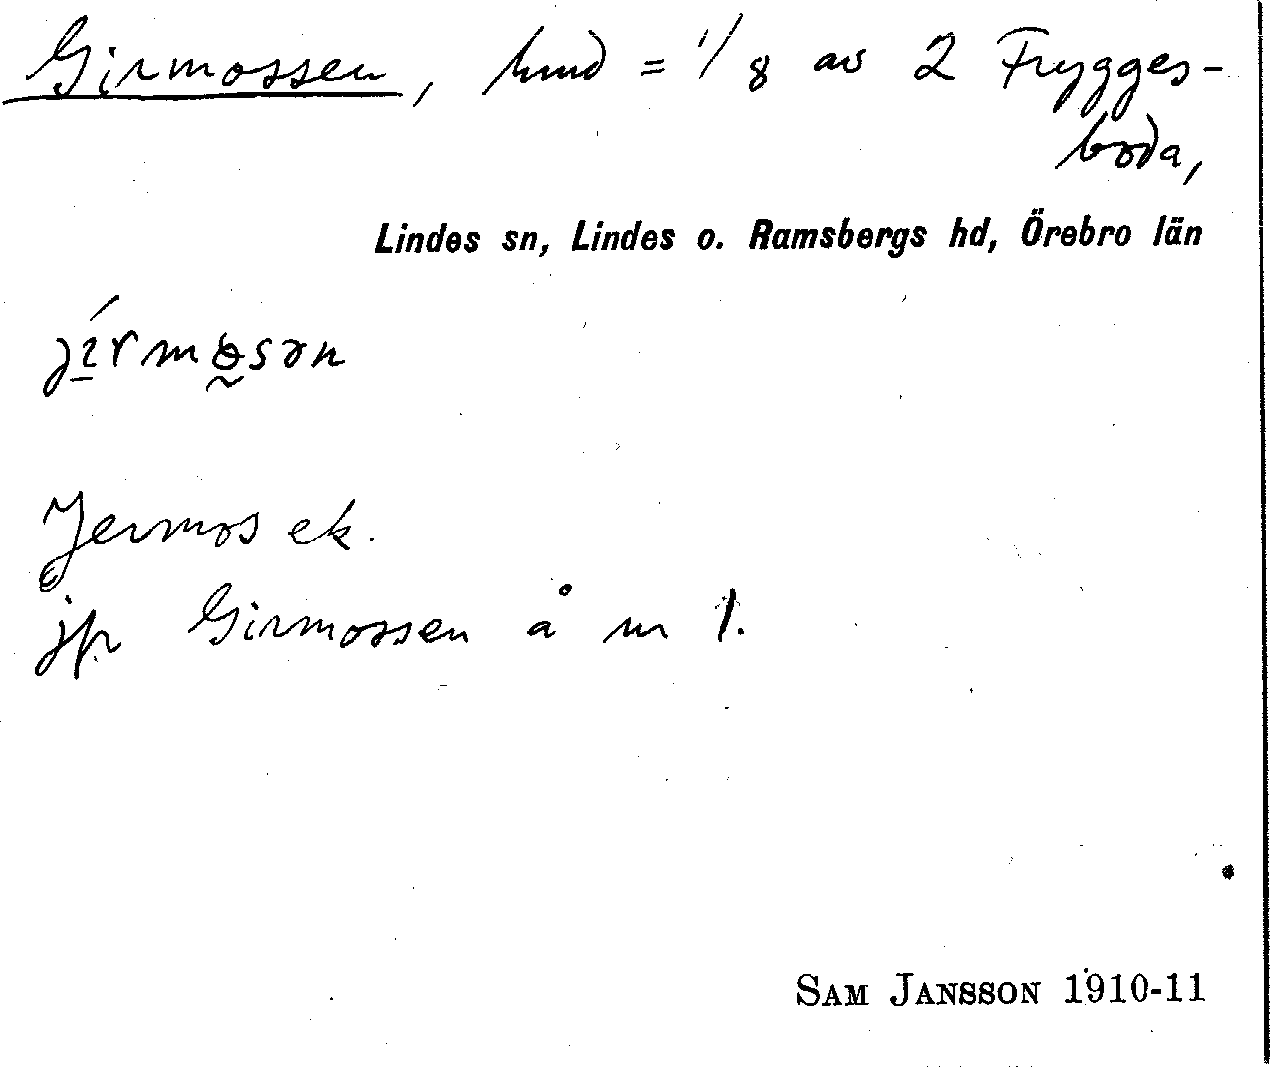 Girmossen, hmd = 1/8 av 2 Frygges-
boda,
Lindes sn, Lindes o. Ramsbergs hd, Örebro län
jírmɵsən
Jermos ek.
jfr Girmossen å nr 1.
SAM JANSSON 1910-11